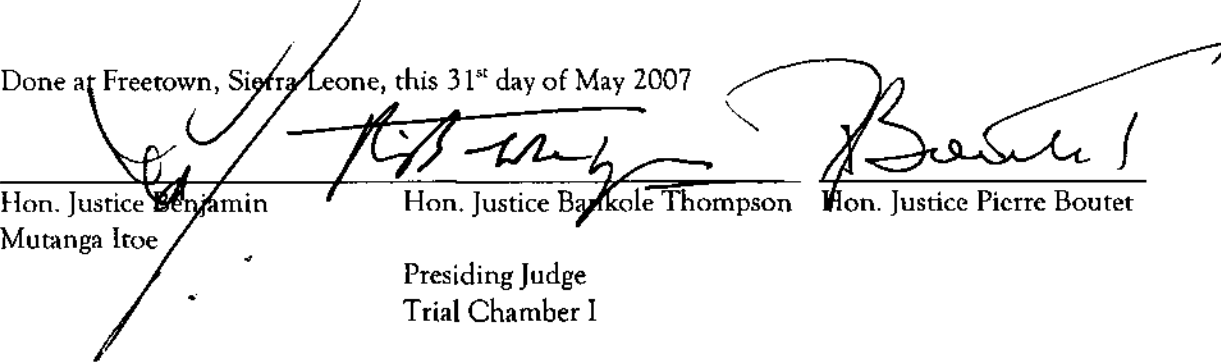 Done at Freetown, Sierra Leone, this 31st day of May 2007
Hon. Justice Benjamin Mutanga Itoe
Hon. Justice Bankole Thompson
Presiding Judge
Trial Chamber I
Hon. Justice Pierre Boutet